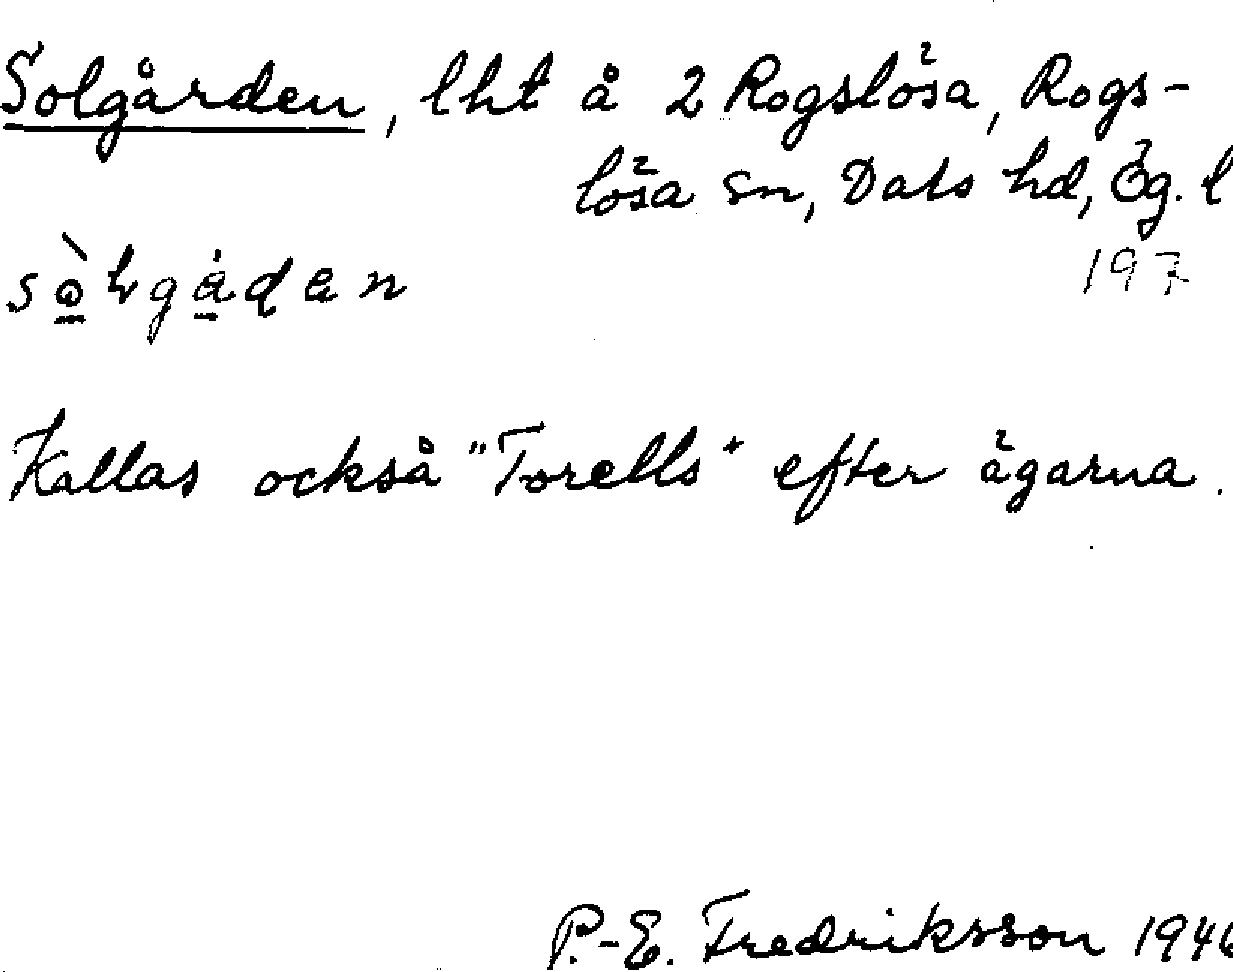 Solgården, lht å 2 Rogslösa, Rogs-
lösa sn, Dals hd, Ög. l
197
Kallas också "Torells" efter ägarna.
P.-E. Fredriksson 1946